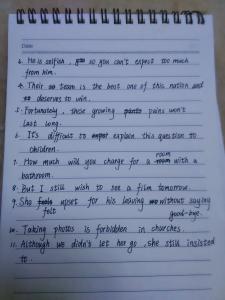 Date:
3. He is selfish, so you can't expect too much
from him.
4. Their team is the best one of this nation and
deserves to win.
5. Fortunately, these growing pains won't
last long.
6. It's difficult to explain this question to
children.
7. How much will you charge for a room with a
bathroom.
8. But I still wish to see a film tomorrow.
9. She felt upset for his leaving without saying
good-bye.
10. Taking photos is forbidden in churches.
11. Although we didn't let her go, she still insisted
to.